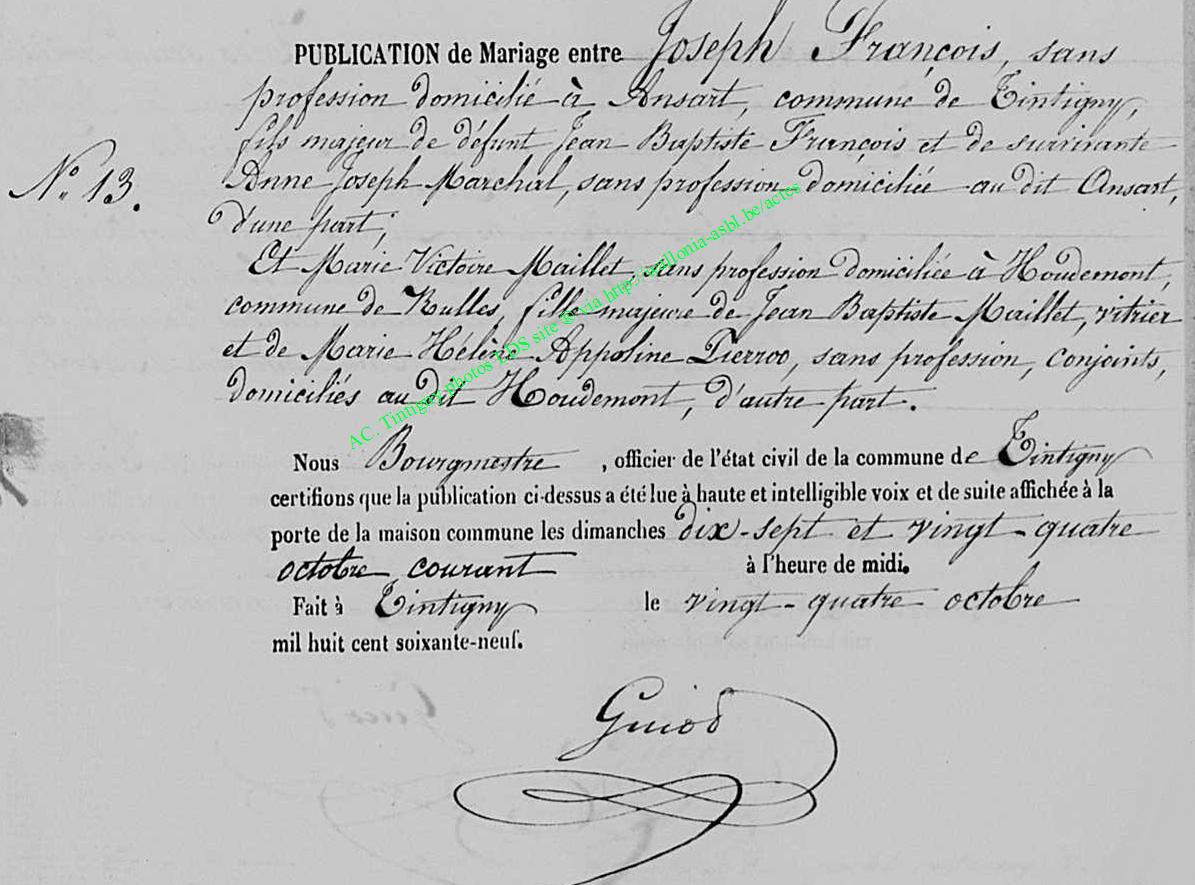 PUBLICATION de Mariage entre Joseph François, sans
profession domicilié à Ansart, commune de Tintigny,
fils majeur de défunt Jean Baptiste François et de survivante
Nº 13.
Anne Joseph Marchal, sans profession domiciliée au dit Ansart,
d'une part;
Et Marie Victoire Maillet, sans profession domiciliée à Houdemont,
commune de Rulles, fille majeure de Jean Baptiste Maillet, vitrier
et de Marie Hélène Appoline Pierroo, sans profession, conjoints,
domiciliés au dit Houdemont, d'autre part.
AC. Tintigny photos EDS site @ via http://wallonia-asbl.be/actes
Nous Bourgmestre , officier de l'état civil de la commune de Tintigny
certifions que la publication ci-dessus a été lue à haute et intelligible voix et de suite affichée à la
porte de la maison commune les dimanches dix-sept et vingt-quatre
octobre courant à l'heure de midi.
Fait à Tintigny le vingt-quatre octobre
mil huit cent soixante-neuf.
Guiod